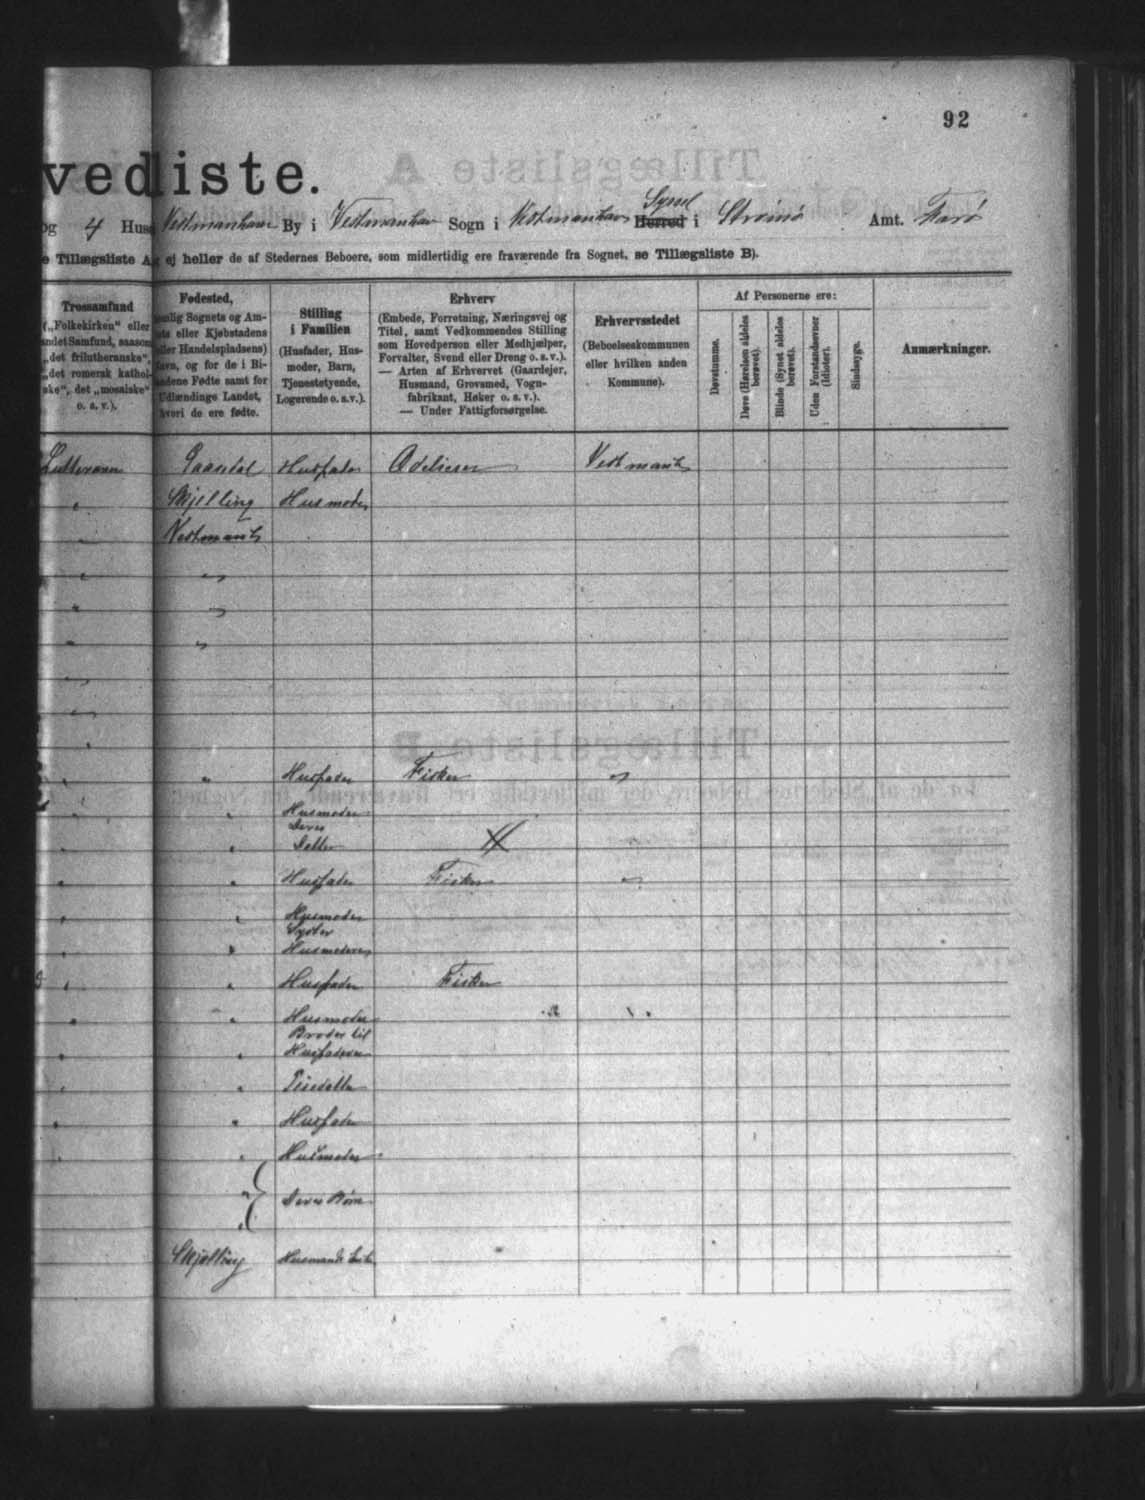 92
vedliste.
og 4 Huse Vestmanhavn By i Vestmanhav Sogn i Vestmanhavns Syssel Herred i Strømø Amt. Færø
e Tillægsliste A, og ej heller de af Stedernes Beboere, som midlertidig ere fraværende fra Sognet, se Tillægsliste B).
Trossamfund
(„Folkekirken“ eller
andet Samfund, saasom
„det frilutheranske“,
„det romersk kathol-
ske“, det „mosaiske“
o. s. v.).
Fødested,
nemlig Sognets og Am-
ets eller Kjøbstadens
(eller Handelspladsens)
Navn, og for de i Bi-
landene Fødte samt for
Udlændinge Landet,
hvori de ere fødte.
Stilling
i Familien
(Husfader, Hus-
moder, Barn,
Tjenestetyende,
Logerende o. s. v.).
Erhverv
(Embede, Forretning, Næringsvej og
Titel, samt Vedkommendes Stilling
som Hovedperson eller Medhjælper,
Forvalter, Svend eller Dreng o. s. v.).
— Arten af Erhvervet (Gaardejer,
Husmand, Grovsmed, Vogn-
fabrikant, Høker o. s. v.).
— Under Fattigforsørgelse.
Erhvervsstedet
(Beboelseskommunen
eller hvilken anden
Kommune).
Af Personerne ere:
Døvstumme.
Døve (Hørelsen aldeles
berøvet).
Blinde (Synet aldeles
berøvet).
Uden Forstandsevner
(Idioter).
Sindssyge.
Anmærkninger.
Lutheraner Gaasdal Husfader Vestmanh
" Skjelling Husmoder
" Vestmanh
" "
" "
" "
"
"
"
" " Husfader Fisker "
" " Husmoder
Deres
" " Datter
" " Husfader Fisker "
" " Husmoder
Syster
" " Husmoderen
" " Husfader Fisker
" " Husmoder
Broder til
" " Husfaderen
" "
" " Husfader
" " Husmoder
" Deres Børn
"
Skjelling